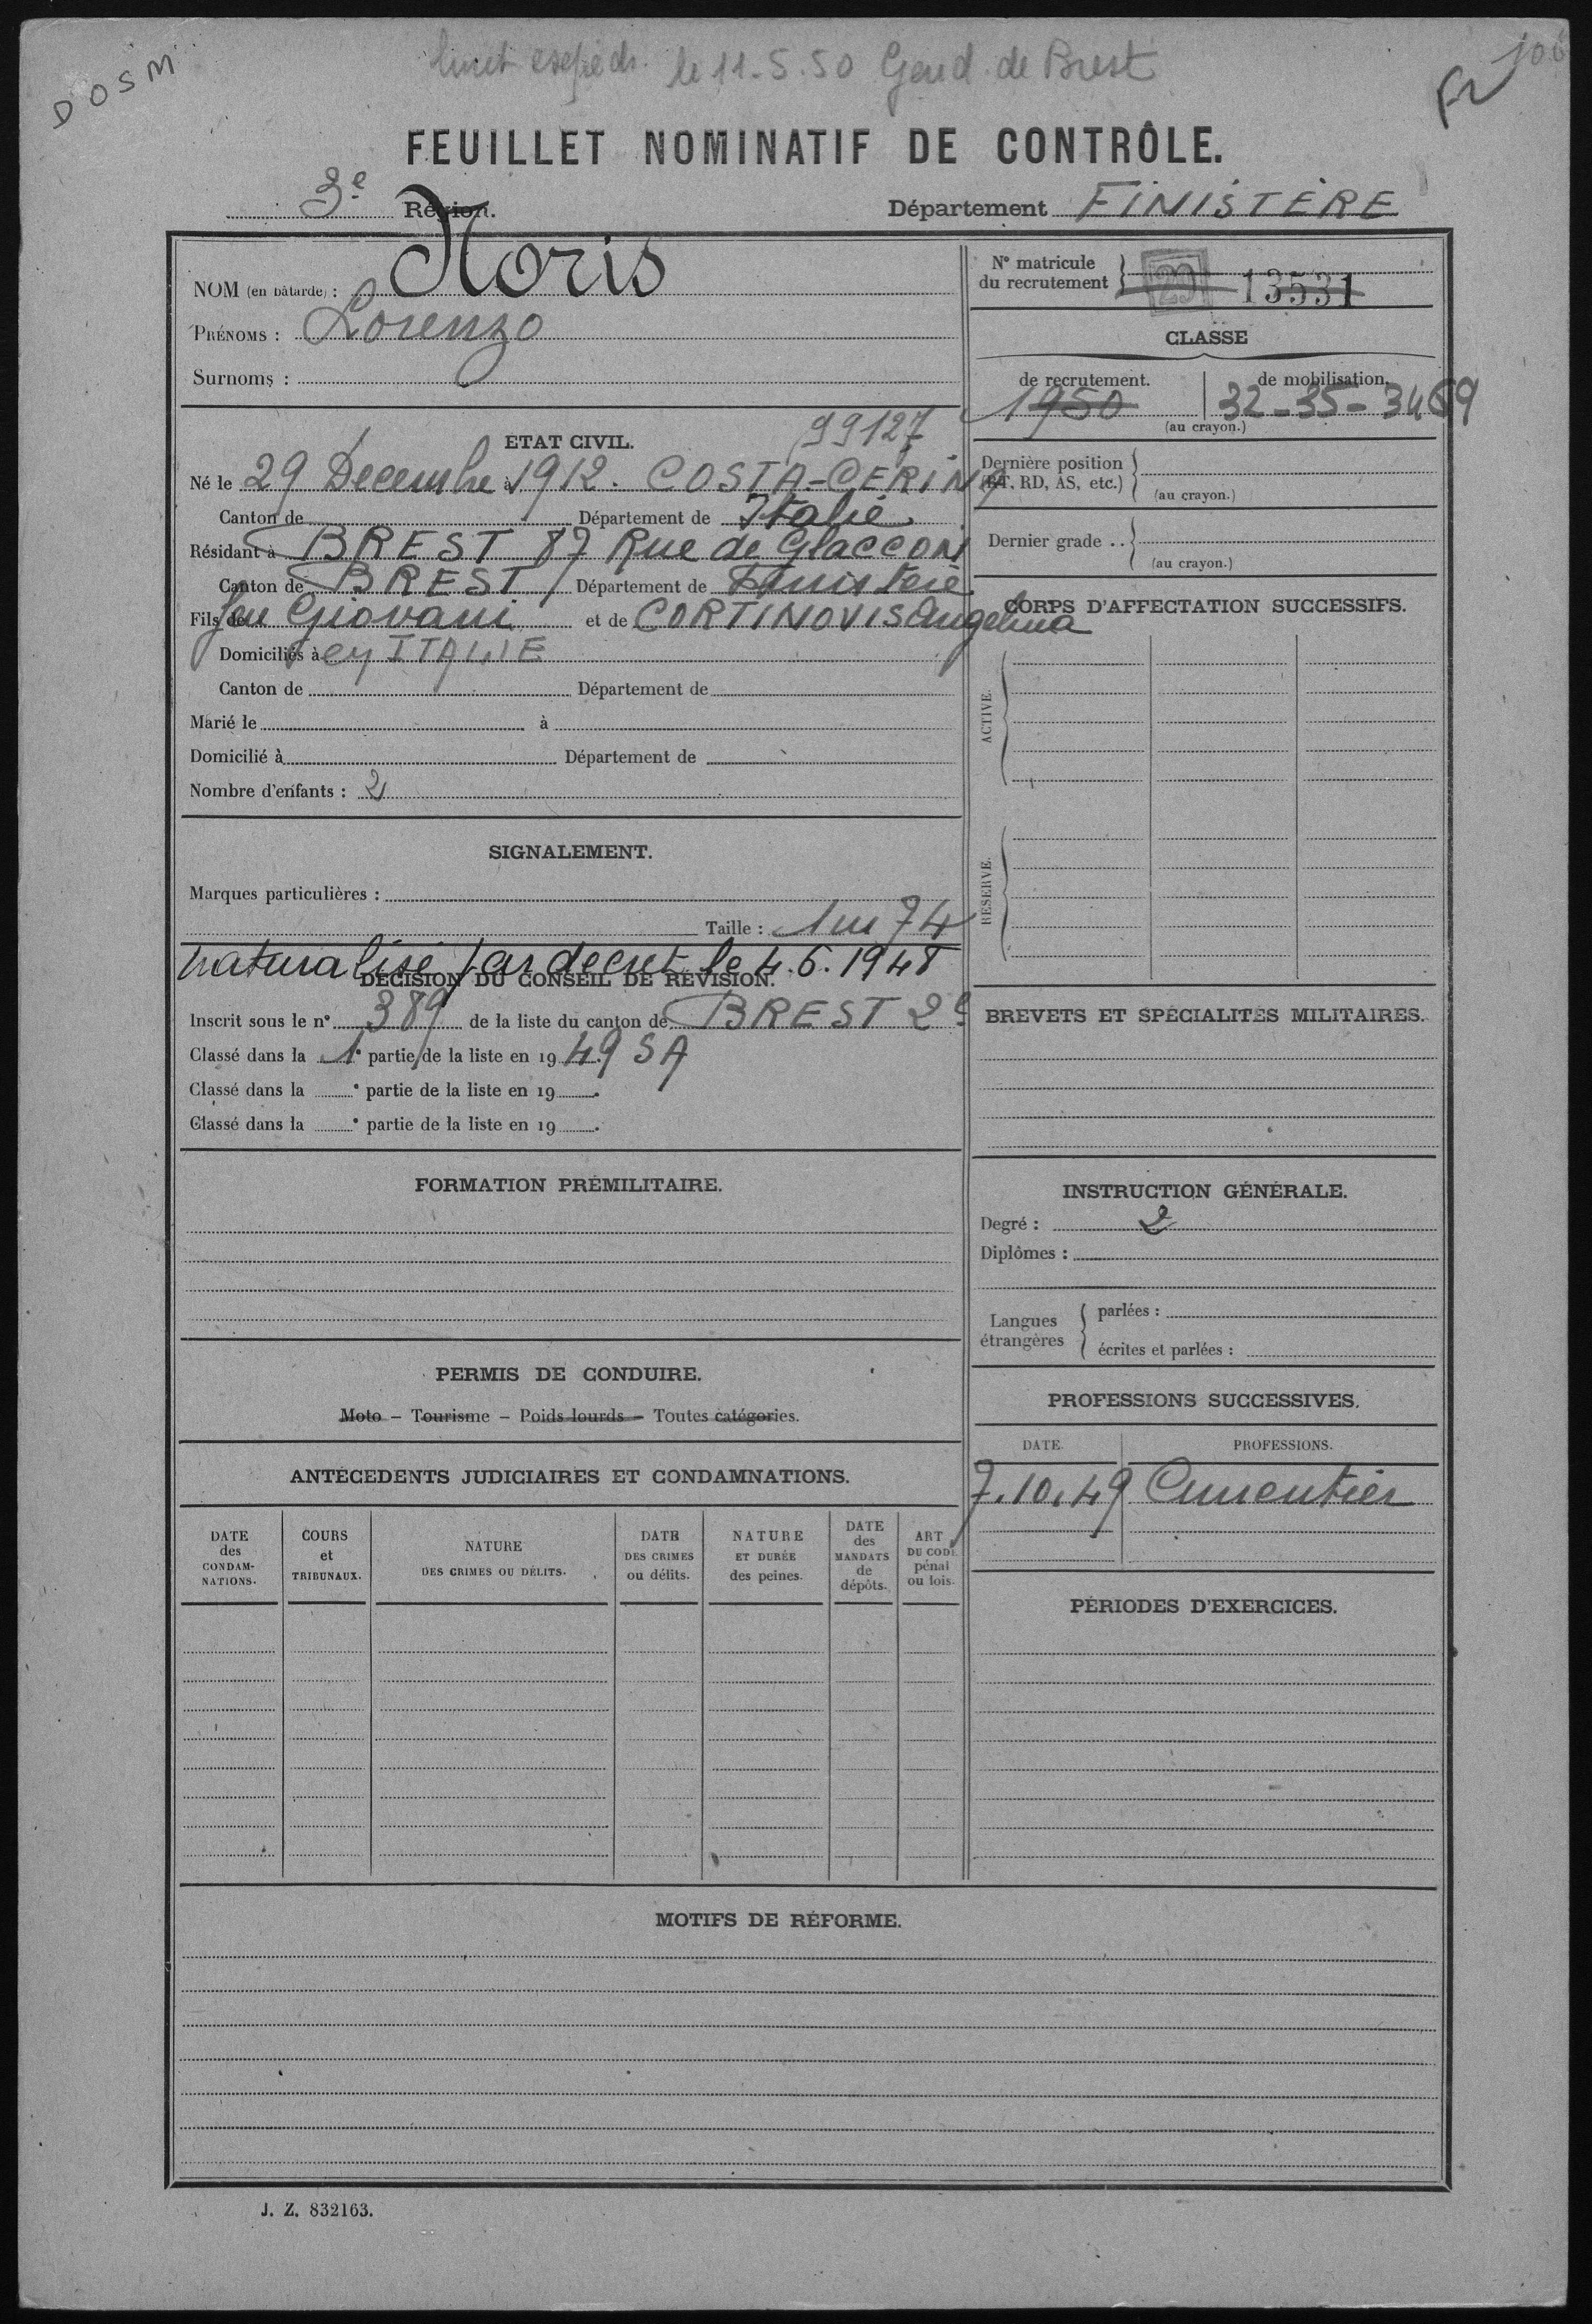 DOSM
livret expédié le 11-5-50 Gend. de Brest
FEUILLET NOMINATIF DE CONTRÔLE.
3e Région.
Département FINISTÈRE
NOM (en bâtarde) : Noris
PRÉNOMS : Lorenzo
Surnoms :
ÉTAT CIVIL.
99127
Né le 29 Decembre 1912. à COSTA-CERINA
Canton de Département de Italie
Résidant à BREST 87 Rue de
Canton de BREST Département de Finistère
Fils de feu Giovani et de CORTINOVIS Angelina
Domiciliés à en ITALIE
Canton de Département de
Marié le à
Domicilié à Département de
Nombre d'enfants : 2
SIGNALEMENT.
Marques particulières :
Taille : 1m 74
naturalisé par decret le 4.6.1948
DÉCISION DU CONSEIL DE RÉVISION.
Inscrit sous le n° 389 de la liste du canton de BREST 2e
Classé dans la 1e partie de la liste en 1949. SA
Classé dans la e partie de la liste en 19 .
Classé dans la e partie de la liste en 19 .
FORMATION PRÉMILITAIRE.
PERMIS DE CONDUIRE.
Moto – Tourisme – Poids lourds – Toutes catégories.
ANTÉCÉDENTS JUDICIAIRES ET CONDAMNATIONS.
DATE des CONDAMNATIONS.
COURS et TRIBUNAUX.
NATURE DES CRIMES OU DÉLITS.
DATE DES CRIMES ou délits.
NATURE ET DURÉE des peines.
DATE des MANDATS de dépôts.
ART. DU CODE pénal ou lois.
N° matricule du recrutement 29 13531
CLASSE
de recrutement. 1950
de mobilisation. 32-35-34
(au crayon.)
Dernière position (BT, RD, AS, etc.)
(au crayon.)
Dernier grade ..
(au crayon.)
CORPS D'AFFECTATION SUCCESSIFS.
ACTIVE.
RÉSERVE.
BREVETS ET SPÉCIALITÉS MILITAIRES.
INSTRUCTION GÉNÉRALE.
Degré : 2
Diplômes :
Langues étrangères
parlées :
écrites et parlées :
PROFESSIONS SUCCESSIVES.
DATE. PROFESSIONS.
7.10.49 Cimentier
PÉRIODES D'EXERCICES.
MOTIFS DE RÉFORME.
J. Z. 832163.